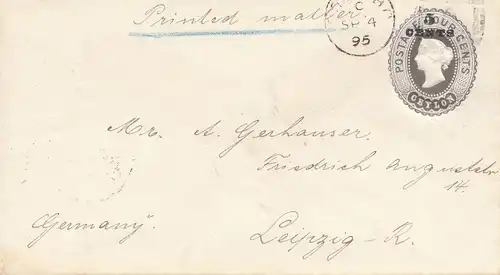 Printed matter
C
SP 4
95
5
CENTS
POSTAGE FOUR CENTS
CEYLON
Mr. A. Gerhauser.
Friedrich Auguststr
14.
Germany.
Leipzig-R.